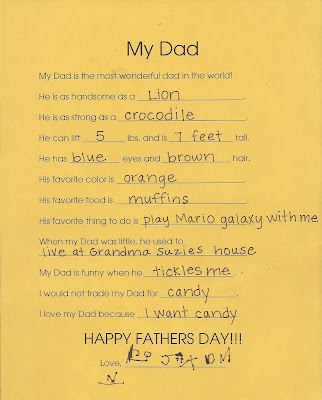 My Dad
My Dad is the most wonderful dad in the world!
He is as handsome as a Lion.
He is as strong as a crocodile.
He can lift 5 lbs. and is 7 feet tall.
He has blue eyes and brown hair.
His favorite color is orange.
His favorite food is muffins.
His favorite thing to do is play Mario galaxy with me
When my Dad was little, he used to
live at Grandma Suzies house
My Dad is funny when he tickles me.
I would not trade my Dad for candy.
I love my Dad because I want candy
HAPPY FATHERS DAY!!!
Love,